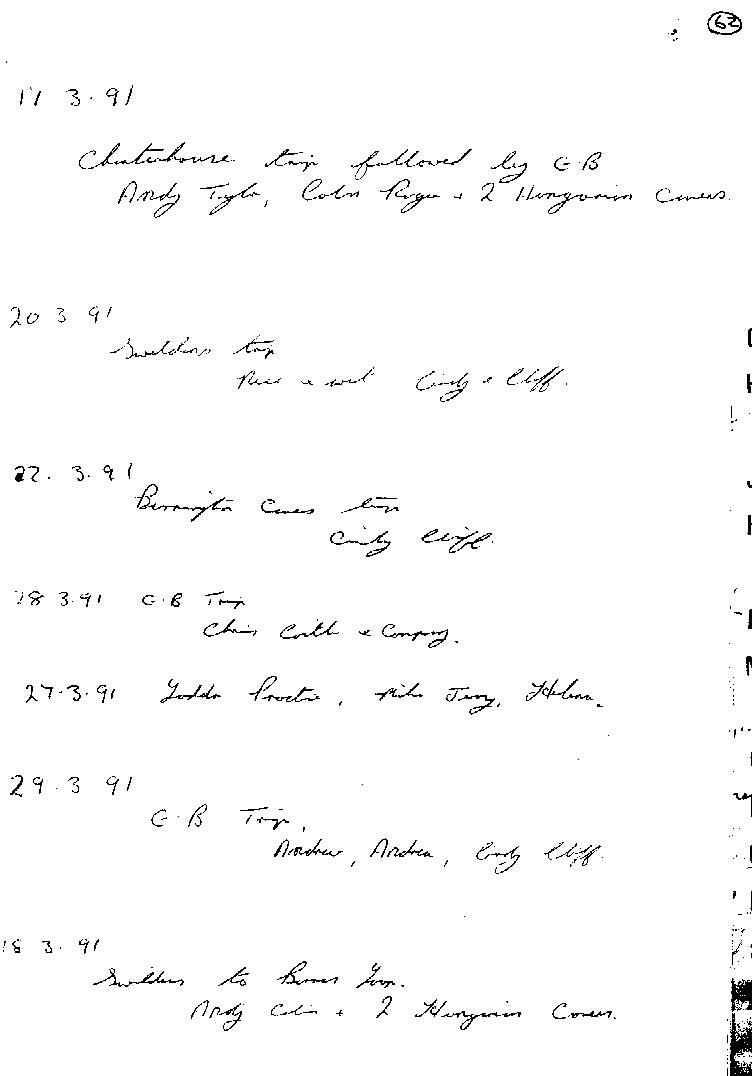 62
17 3.91
Charterhouse trip followed by G.B
Andy Tyler, Colin Roger + 2 Hungarian Cavers.
20 3 91
Swildons trip
Nice & wet Cindy & Cliff.
22. 3.91
Burrington Caves trip
Cindy Cliff.
28 3.91 G.B Trip
Chris & Company.
27.3.91 Practice, Mike Terry, Helena.
29.3 91
G.B Trip,
Andrew, Andrea, Cindy Cliff.
18 3.91
Swildons to
Andy Colin + 2 Hungarian Cavers.